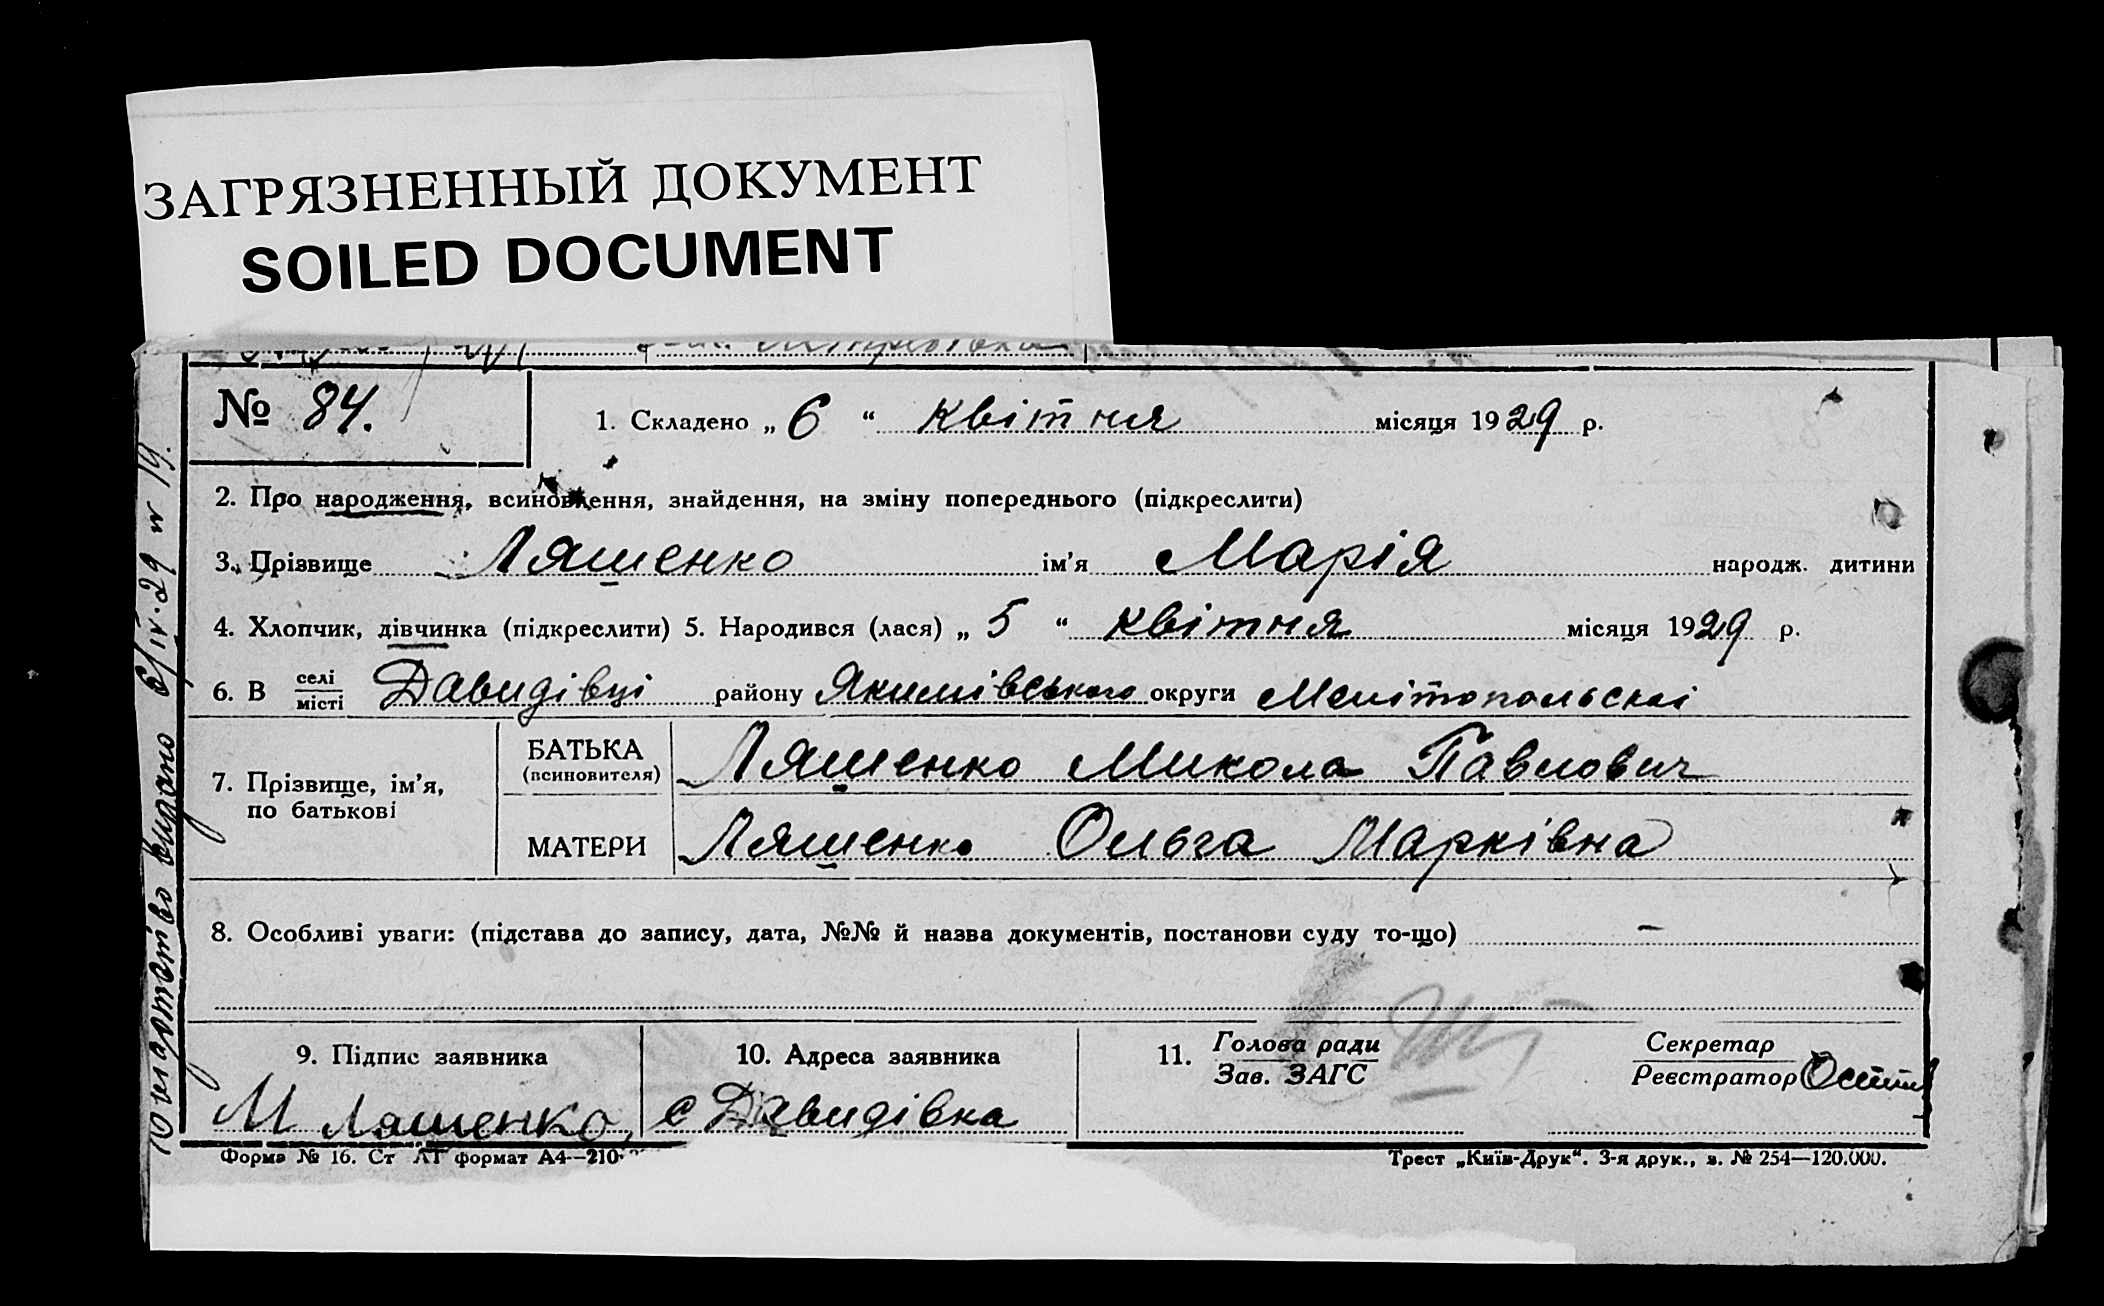 ЗАГРЯЗНЕННЫЙ ДОКУМЕНТ
SOILED DOCUMENT
№ 84.
1. Складено „ 6 “ квітня місяця 1929 р.
2. Про народження, всиновлення, знайдення, на зміну попереднього (підкреслити)
3. Прізвище Ляшенко ім’я Марія народж. дитини
4. Хлопчик, дівчинка (підкреслити) 5. Народився (лася) „ 5 “ квітня місяця 1929 р.
6. В селі місті Давидівці району Якимівського округи Мелітопольскої
7. Прізвище, ім’я, по батькові
БАТЬКА (всиновителя) Ляшенко Микола Павлович
МАТЕРИ Ляшенко Ольга Марківна
8. Особливі уваги: (підстава до запису, дата, №№ й назва документів, постанови суду то-що) –
9. Підпис заявника
М Ляшенко
10. Адреса заявника
с Давидівка
11. Голова ради
Зав. ЗАГС
Секретар
Реєстратор
Форма № 16. Ст формат А4—210
Трест „Київ-Друк“. 3-я друк., з. № 254—120.000.
видано 6/IV-29 № 19.